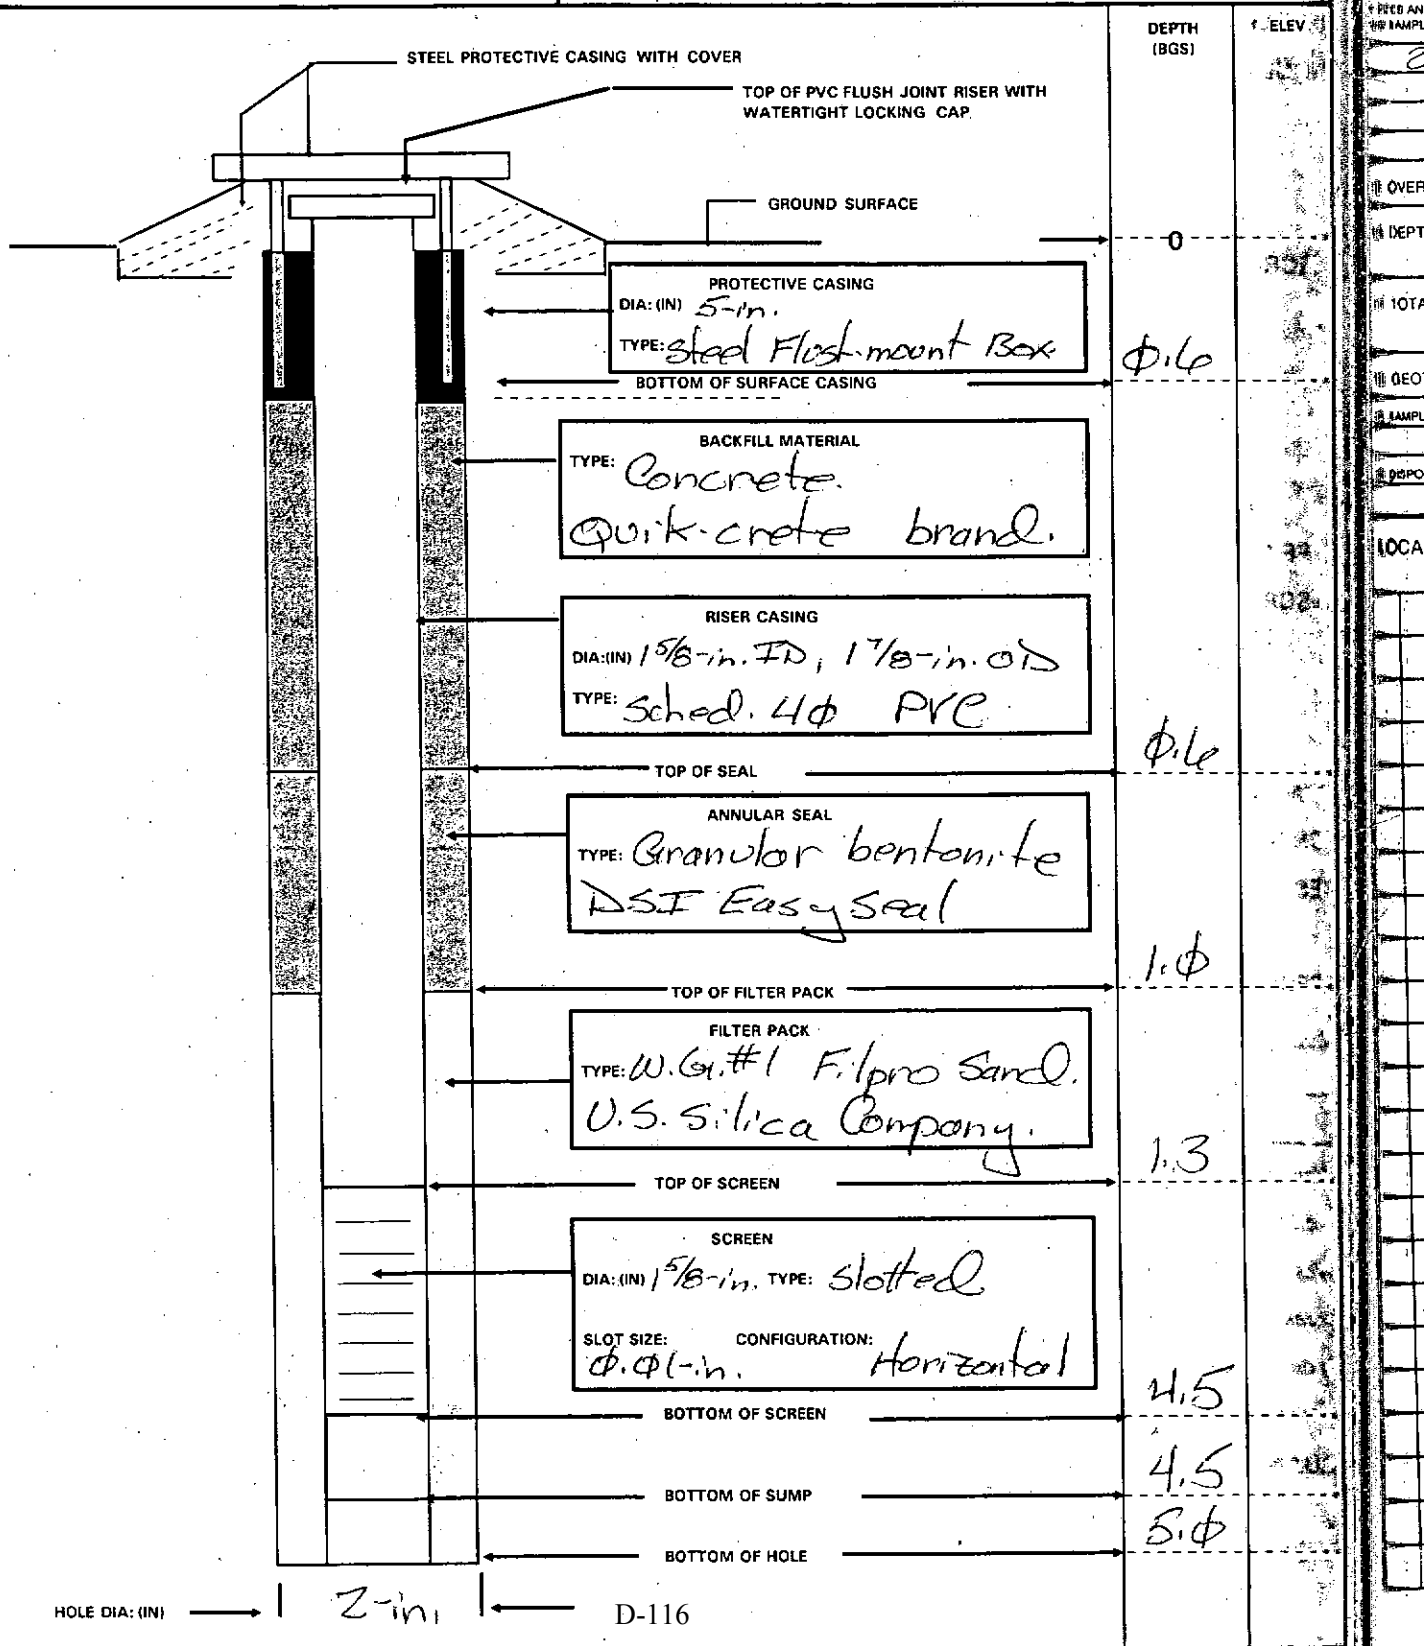 DEPTH
(BGS)
ELEV.
STEEL PROTECTIVE CASING WITH COVER
TOP OF PVC FLUSH JOINT RISER WITH
WATERTIGHT LOCKING CAP
GROUND SURFACE
0
PROTECTIVE CASING
DIA: (IN) 5-in.
TYPE: Steel Flost-mount Box
BOTTOM OF SURFACE CASING
Ø.6
BACKFILL MATERIAL
TYPE: Concrete.
Quik-crete brand.
RISER CASING
DIA:(IN) 1 5/8-in. ID, 1 7/8-in. OD
TYPE: Sched. 4Ø PVC
TOP OF SEAL
Ø.6
ANNULAR SEAL
TYPE: Granular bentonite
DSI Easy Seal
TOP OF FILTER PACK
1.Ø
FILTER PACK
TYPE: W.G. #1 Filpro Sand.
U.S. Silica Company.
TOP OF SCREEN
1.3
SCREEN
DIA: (IN) 1 5/8-in. TYPE: Slotted
SLOT SIZE: CONFIGURATION:
Ø.Ø1-in. Horizontal
BOTTOM OF SCREEN
4.5
BOTTOM OF SUMP
4.5
BOTTOM OF HOLE
5.Ø
HOLE DIA: (IN) 2-in.
D-116